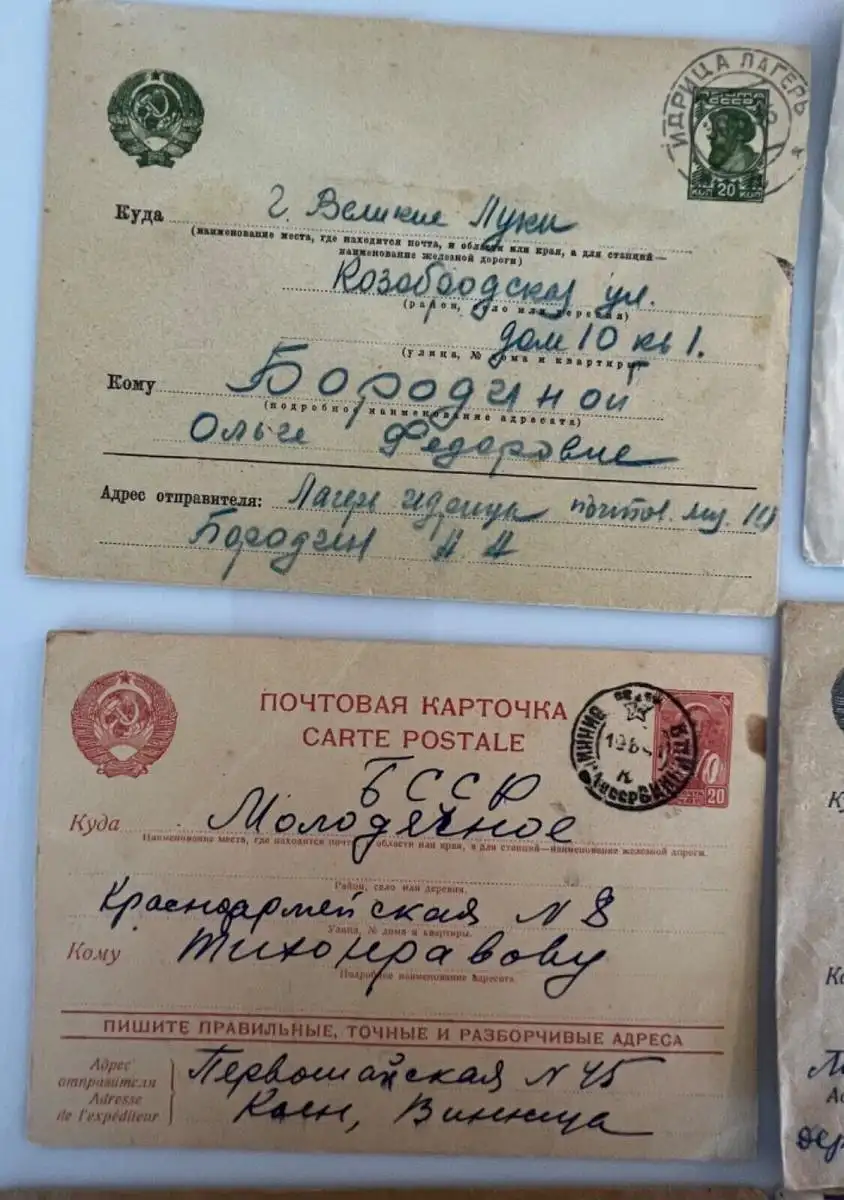 ИДРИЦА ЛАГЕРЬ
ПОЧТА
СССР
КОП 20 КОП
Куда г. Великие Луки
(наименование места, где находится почта, и области или края, а для станций—
наименование железной дороги)
Козобродская ул.
(район, село или деревня)
дом 10 кв 1.
(улица, № дома и квартиры)
Кому Бородиной
(подробное наименование адресата)
Ольге Федоровне
Адрес отправителя: Лагерь Идрица почтов.
Бородин А А
ПОЧТОВАЯ КАРТОЧКА
CARTE POSTALE
20
БССР
Куда Молодечное
Наименование места, где находится почта, и области или края, а для станций—наименование железной дороги.
Район, село или деревня.
Красноармейская N 8
Улица, № дома и квартиры.
Кому Тихонравову
Подробное наименование адресата.
ПИШИТЕ ПРАВИЛЬНЫЕ, ТОЧНЫЕ И РАЗБОРЧИВЫЕ АДРЕСА
Адрес
отправителя
Adresse
de l'expéditeur
Первомайская N 45
Винница